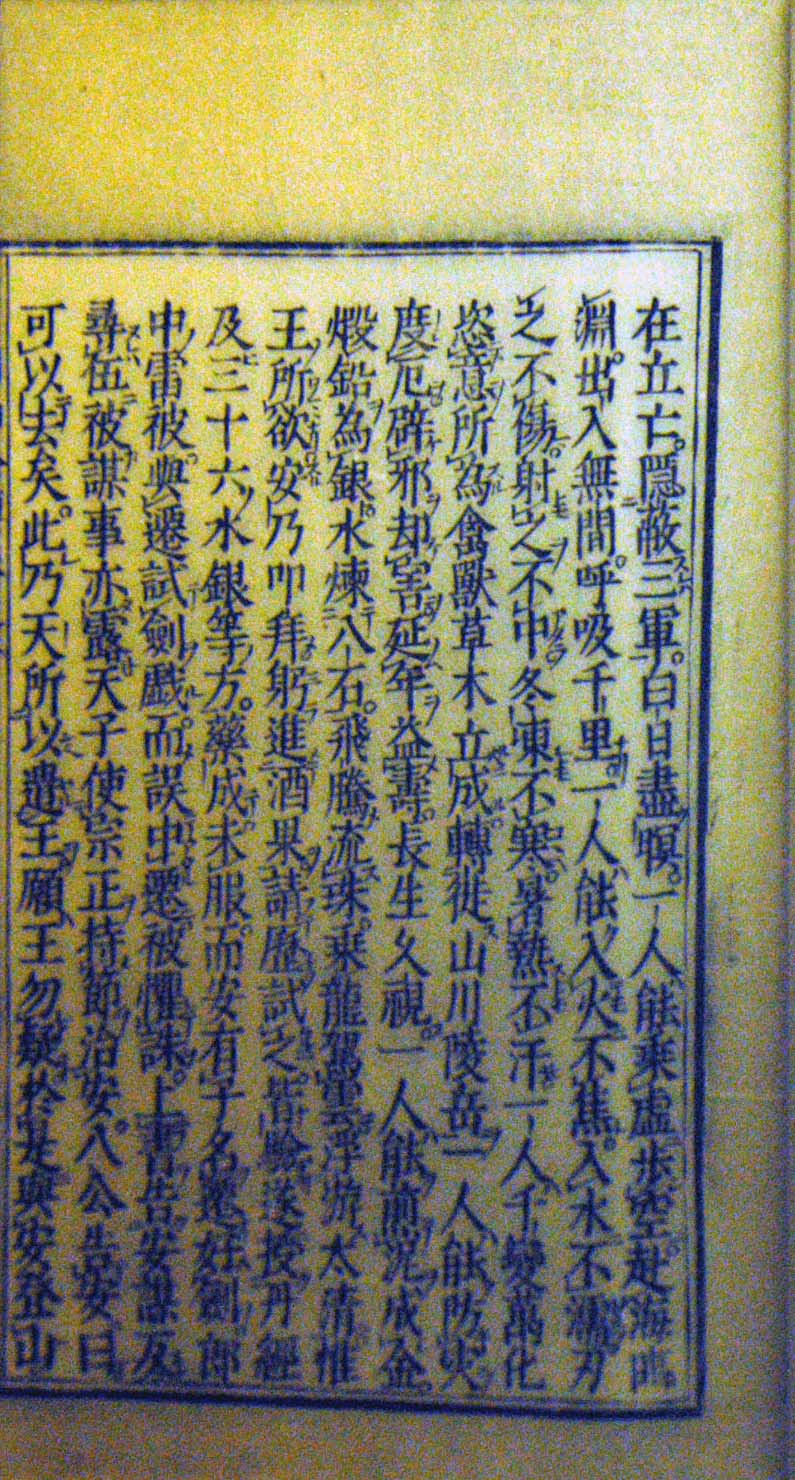 在立亡。隱蔽三軍。白日盡暝。一人能乘虛步空。赴海
淵。出入無間。呼吸千里。一人能入火不焦。入水不濡。刃
之不傷。射之不中。冬凍不寒。暑熱不汗。一人千變萬化
恣意所為。禽獸草木立成。轉徙山川陵岳。一人能防災
度厄。辟邪却害。延年益壽。長生久視。一人能煎泥成金。
煅鉛為銀。水煉八石。飛騰流珠。乘龍駕雲。浮游太清。惟
王所欲。安乃叩拜。躬進酒果。請歷試之。皆驗。遂授丹經
及三十六水銀等方。藥成未服。而安有子名遷。好劍。郎
中雷被與遷試劍戲。而誤中遷。被懼誅。上書告安謀反
尋伍被謀事亦露。天子使宗正持節治安。八公告安曰
可以去矣。此乃天所以遣王。願王勿疑。於是與安登山